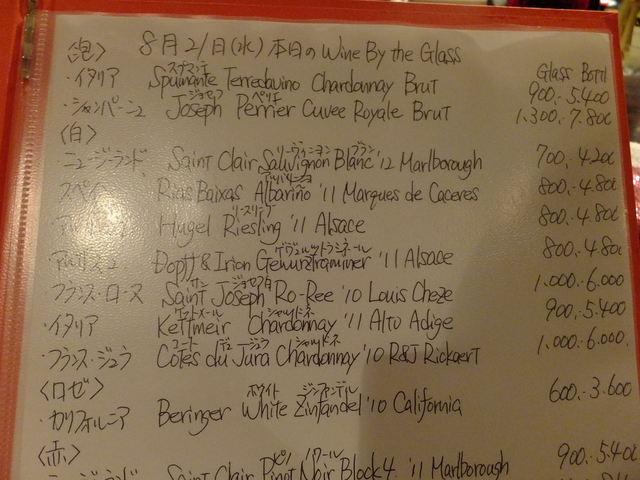 〈泡〉 8月21日(水) 本日の Wine By the Glass
Glass Bottl
スプマンテ
・イタリア Spumante Terredavino Chardonnay Brut 900.- 5.400
ジョセフ ペリエ
・シャンパーニュ Joseph Perrier Cuvee Royale Brut 1.300. 7.80
〈白〉
ソーヴィニヨン ブラン
・ニュージーランド Saint Clair Sauvignon Blanc '12 Marlborough 700.- 4.20
アルバリーニョ
スペイン Rias Baixas Albariño '11 Marques de Caceres 800.- 4.80
リースリング
Hugel Riesling '11 Alsace 800.- 4.80
ゲヴュルツトラミネール
Dopff & Irion Gewurztraminer '11 Alsace 800.- 4.80
サン ジョセフ
フランス・ローヌ Saint Joseph Ro-Ree '10 Louis Cheze 1.000.- 6.000
ケットメール シャルドネ
・イタリア Kettmeir Chardonnay '11 Alto Adige 900.- 5.400
コート デュ ジュラ シャルドネ
・フランス・ジュラ Côtes du Jura Chardonnay '10 R&J Rickaert 1.000.- 6.000.
〈ロゼ〉
ホワイト ジンファンデル
・カリフォルニア Beringer White Zinfandel '10 California 600.- 3.600
〈赤〉
ピノ ノワール
・ニュージーランド Saint Clair Pinot Noir Block4 '11 Marlborough 900.- 5.40